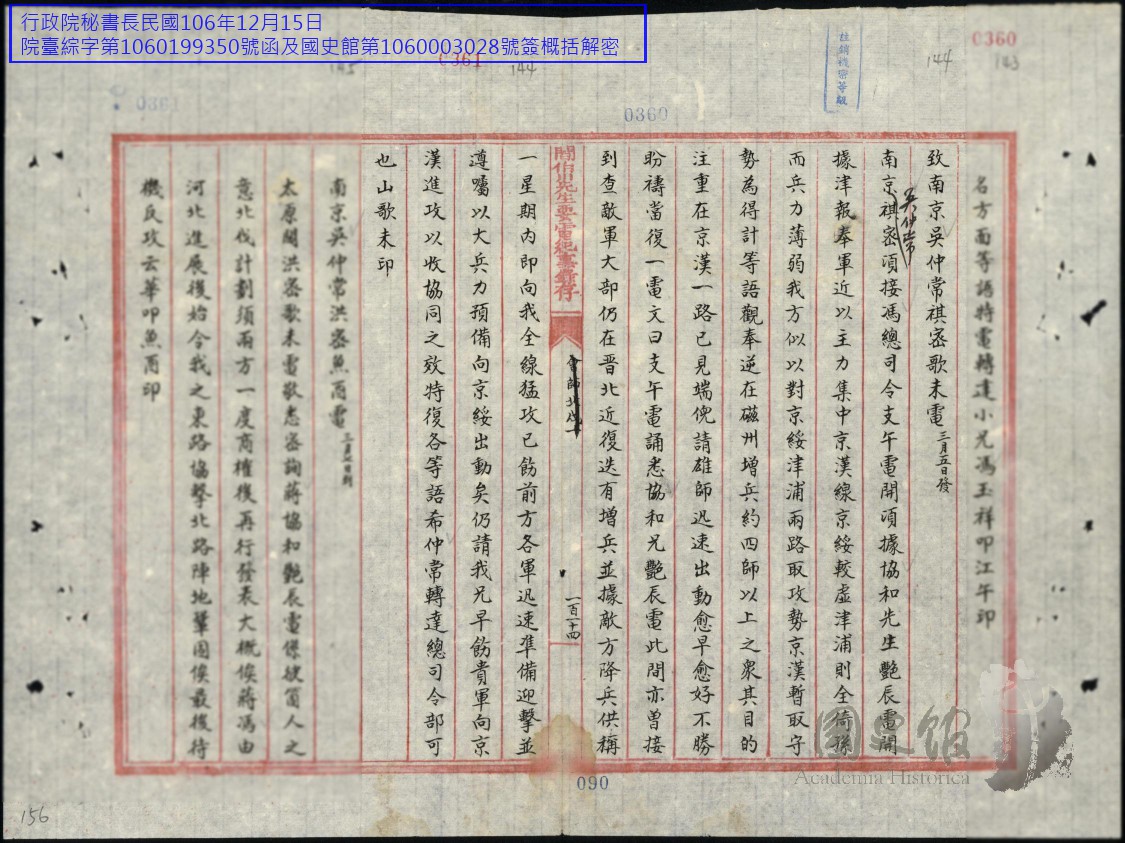 行政院秘書長民國106年12月15日
院臺綜字第1060199350號函及國史館第1060003028號簽概括解密
註銷機密等級
0360
143
144
0361
144
145
0360
名方面等語特電轉達小兄馮玉祥叩江午印
致南京吳仲常祺密歌未電三月五日發
吳仲常
南京祺密頃接馮總司令支午電開頃據協和先生艷辰電開
據津報奉軍近以主力集中京漢線京綏較虛津浦則全倚孫
而兵力薄弱我方似以對京綏津浦兩路取攻勢京漢暫取守
勢為得計等語觀奉逆在磁州增兵約四師以上之眾其目的
注重在京漢一路已見端倪請雄師迅速出動愈早愈好不勝
盼禱當復一電文曰支午電誦悉協和兄艷辰電此間亦曾接
到查敵軍大部仍在晋北近復迭有增兵並據敵方降兵供稱
閻伯川先生要電紀要錄存
會師北伐
一百一十四
一星期內即向我全線猛攻已飭前方各軍迅速準備迎擊並
遵囑以大兵力預備向京綏出動矣仍請我兄早飭貴軍向京
漢進攻以收協同之效特復各等語希仲常轉達總司令部可
也山歌未印
南京吳仲常洪密魚酉電
太原閻洪密歌未電敬悉密詢蔣協和艷辰電係彼箇人之
意北伐計劃須兩方一度商榷後再行發表大概俟蔣馮由
河北進展後始令我之東路協擊北路陣地鞏固俟最後待
機反攻云華叩魚酉印
090
156
國史館
Academia Historica